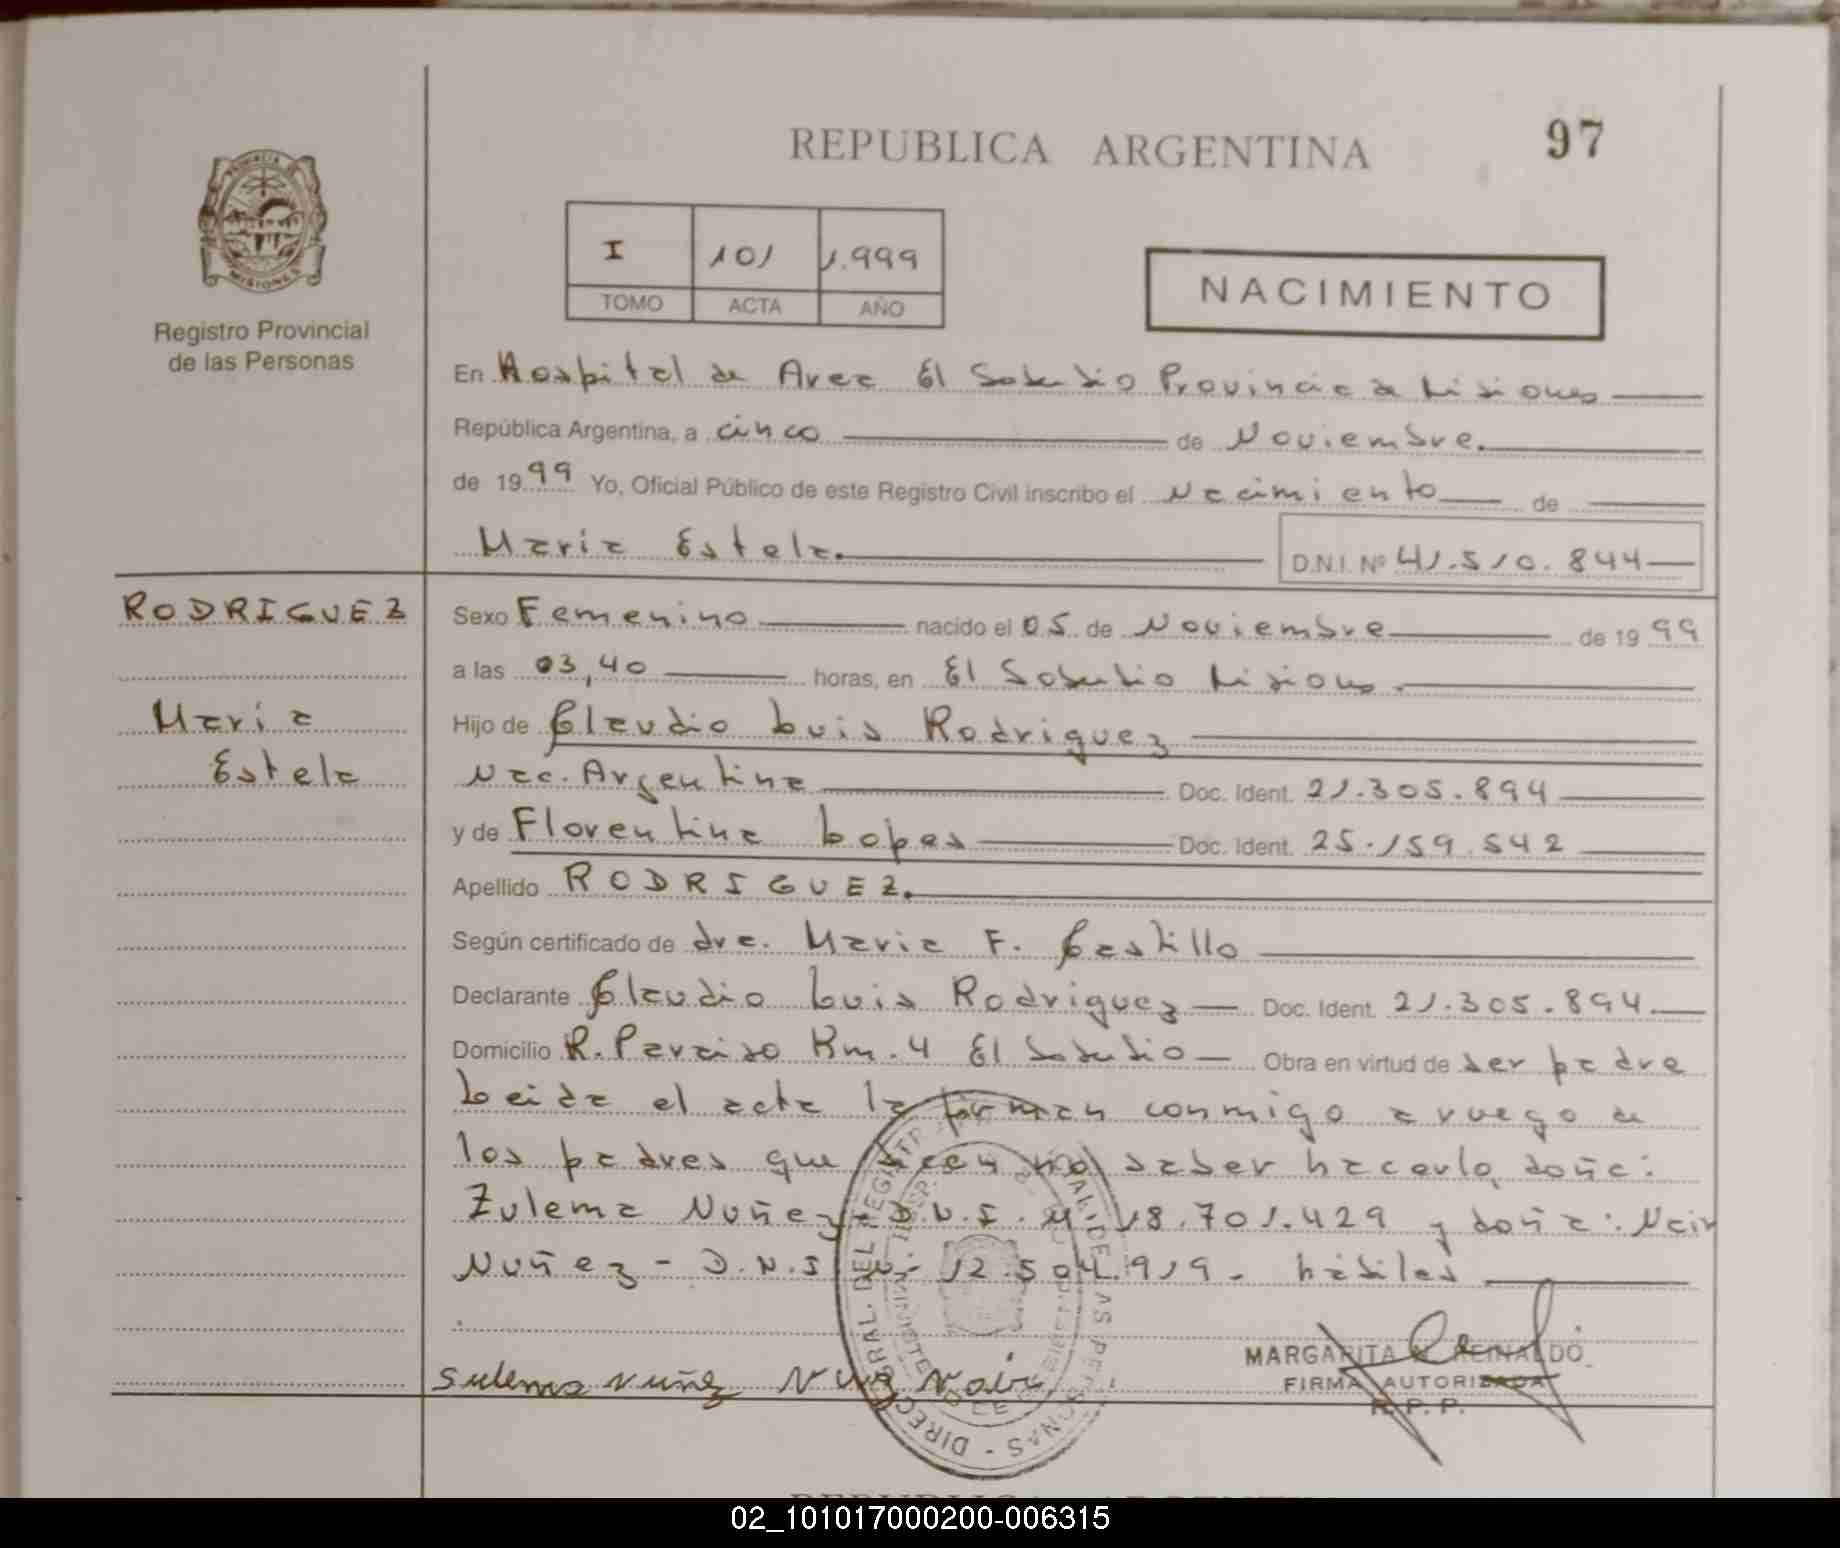 REPUBLICA ARGENTINA
97
MISIONES
Registro Provincial
de las Personas
I 101 1.999
TOMO ACTA AÑO
NACIMIENTO
En Hospital de Area El Soberbio Provincia de Misiones
República Argentina, a cinco de Noviembre.
de 1999 Yo, Oficial Público de este Registro Civil inscribo el Nacimiento de
Maria Estela.
D.N.I. Nº 41.510.844
RODRIGUEZ
Maria
Estela
Sexo Femenino nacido el 05 de Noviembre de 1999
a las 03,40 horas, en El Soberbio Misiones.
Hijo de Claudio Luis Rodriguez
Nac. Argentina Doc. Ident. 21.305.894
y de Florentina Lopes Doc. Ident. 25.159.542
Apellido RODRIGUEZ.
Según certificado de dra. Maria F. Castillo
Declarante Claudio Luis Rodriguez Doc. Ident. 21.305.894.
Domicilio R. Paraiso Km. 4 El Soberbio Obra en virtud de ser padre
Leida el acta la firman conmigo a ruego de
los padres que dicen no saber hacerlo, doña:
Zulema Nuñez - D.N.I. Nº 18.701.429 y doña: Nair
Nuñez - D.N.I. Nº 12.504.919. habiles
sulema nuñez Nair
MARGARITA REINALDO
FIRMA AUTORIZADA
R. P. P.
02_101017000200-006315